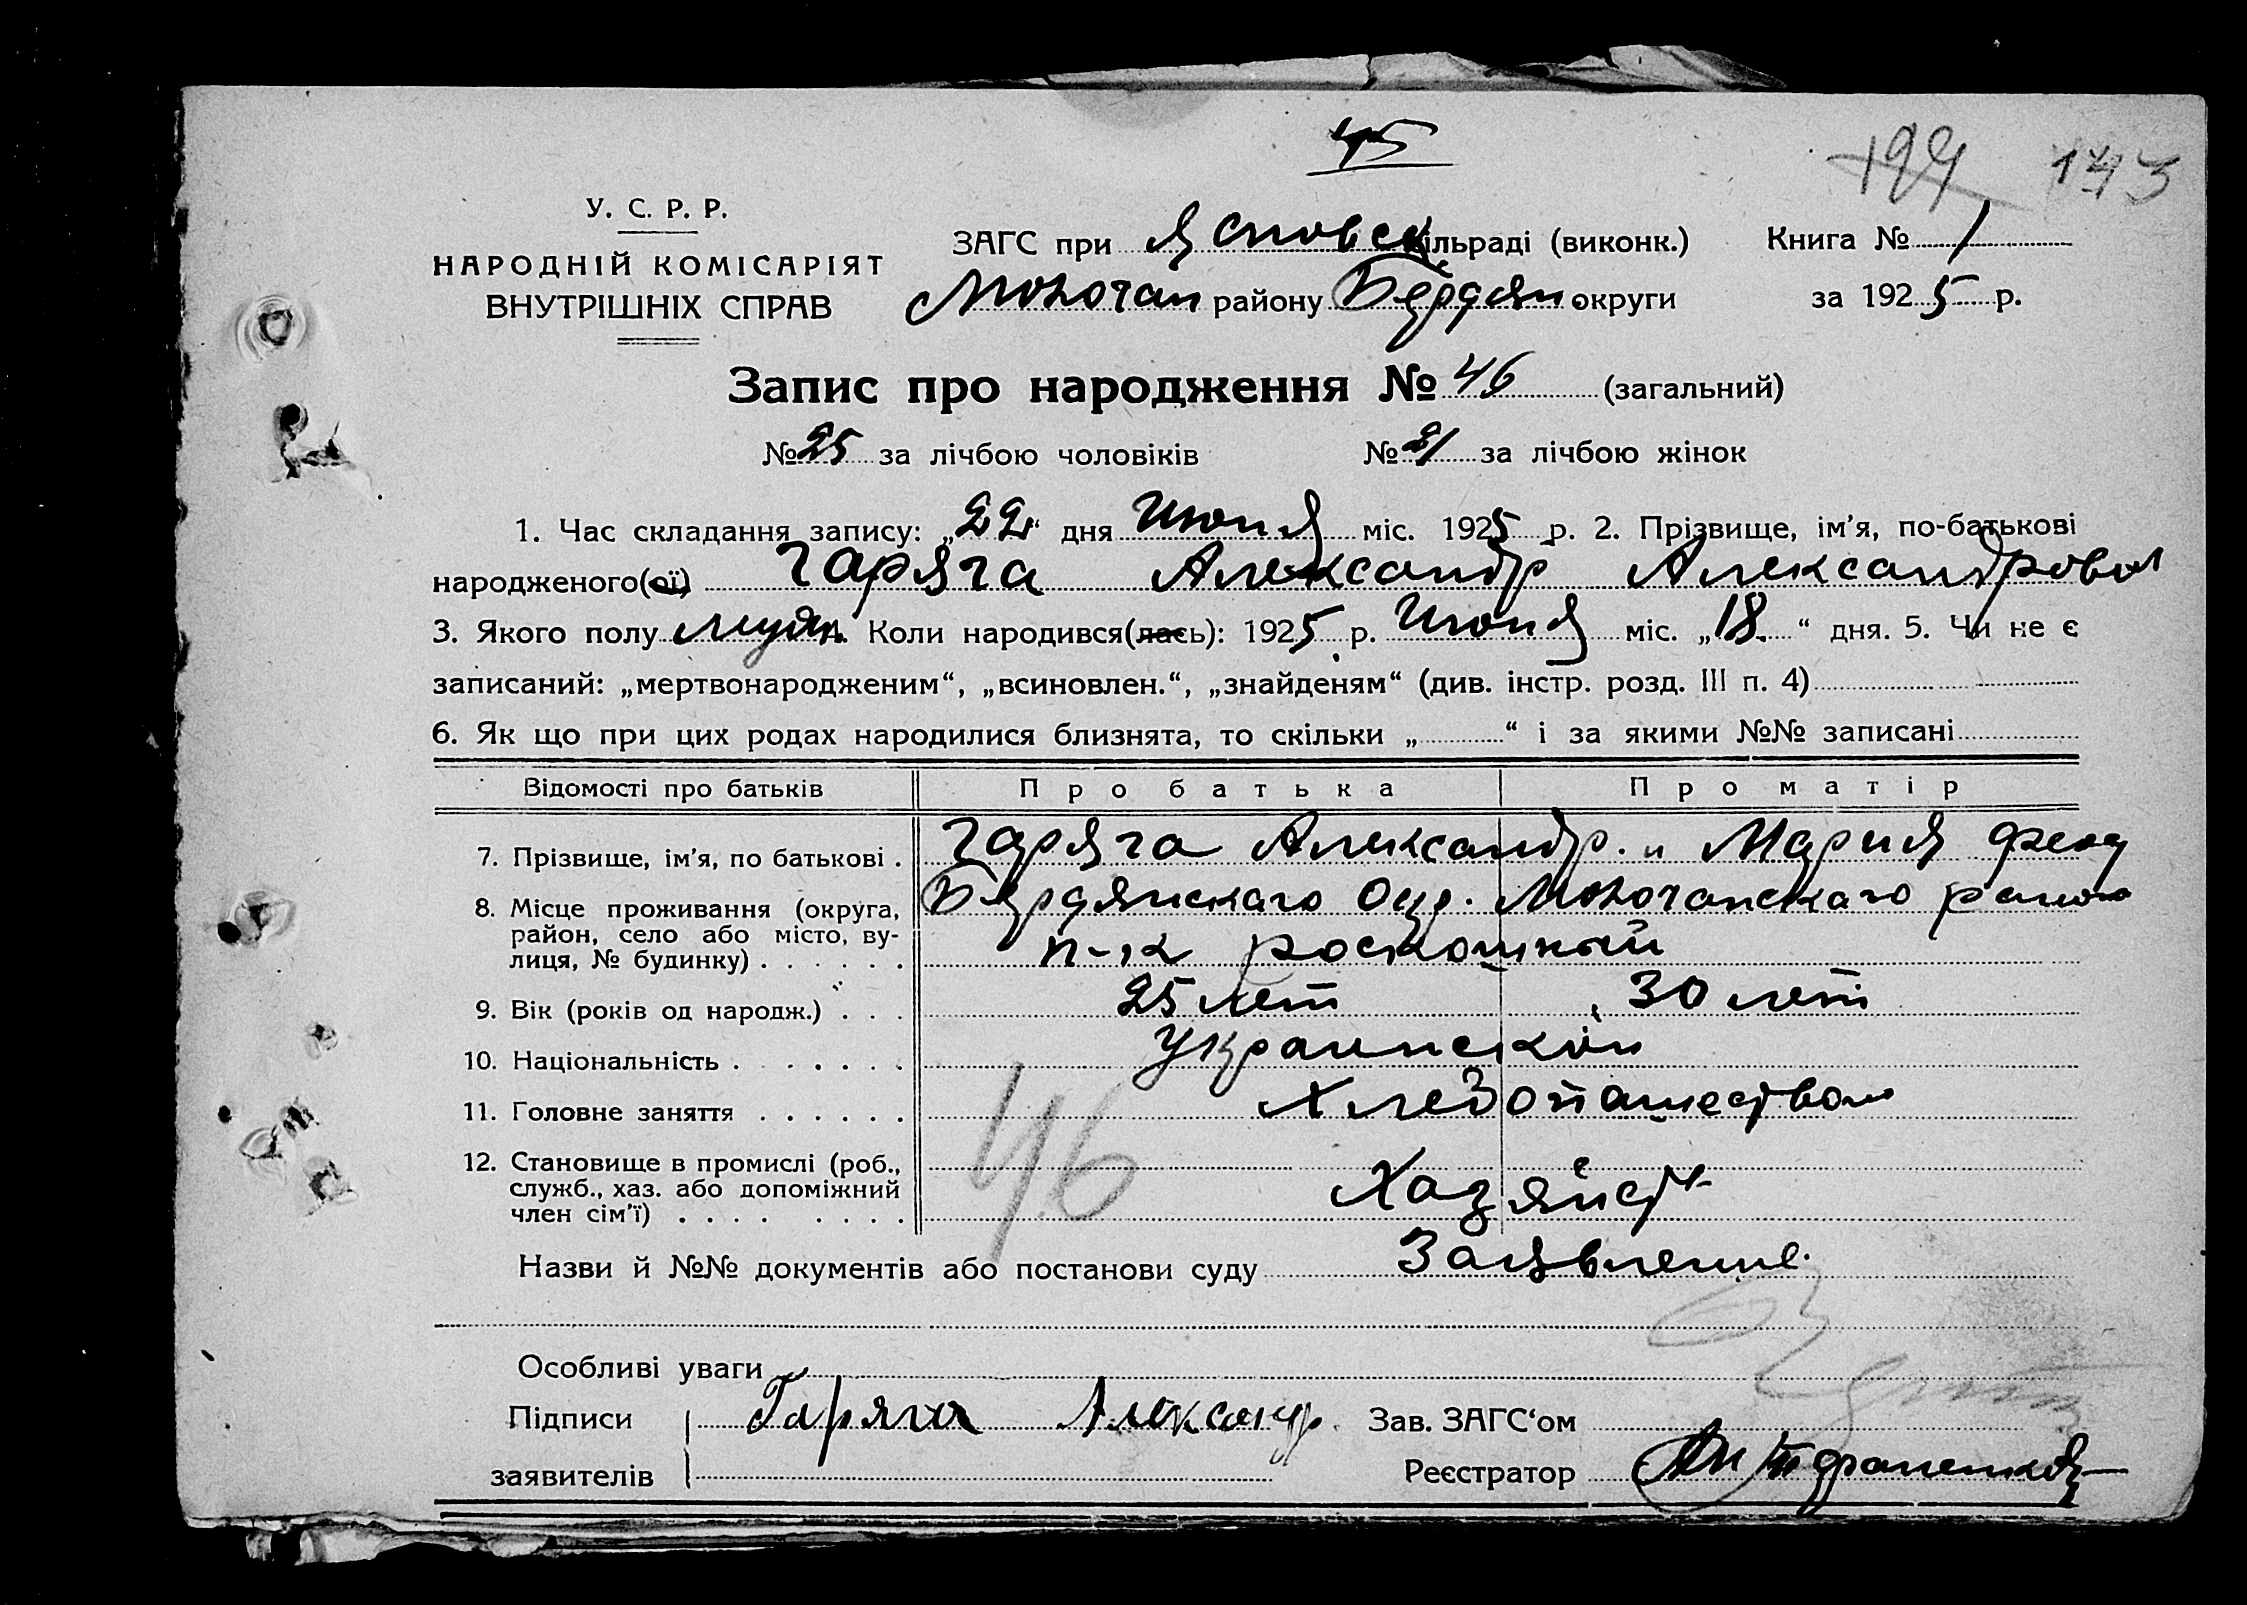 45
194 143
У. С. Р. Р.
НАРОДНІЙ КОМІСАРІЯТ
ВНУТРІШНІХ СПРАВ
ЗАГС при сільраді (виконк.) Книга № 1
Молочан району Бердян округи за 1925 р.
Запис про народження № 46 (загальний)
№ 25 за лічбою чоловіків № 21 за лічбою жінок
1. Час складання запису: „22“ дня Июня міс. 1925 р. 2. Прізвище, ім'я, по-батькові
народженого(ої) Гаряга Александр Александров
3. Якого полу мужс. Коли народився(лась): 1925 р. Июня міс. „18“ дня. 5. Чи не є
записаний: „мертвонародженим“, „всиновлен.“, „знайденям“ (див. інстр. розд. III п. 4)
6. Як що при цих родах народилися близнята, то скільки „ “ і за якими №№ записані
Відомості про батьків Про батька Про матір
7. Прізвище, ім'я, по батькові . Гаряга Александр. и Мария
8. Місце проживання (округа, Бердянскаго Окр. Молочанскаго района
район, село або місто, ву-
лиця, № будинку) . . . . . . п-к роскошный
9. Вік (років од народж.) . . . 25 лет 30 лет
10. Національність . . . . . . . Украинской
11. Головне заняття . . . . . . Хлебопашеством
46
12. Становище в промислі (роб.,
служб., хаз. або допоміжний Хазяйст
член сім'ї) . . . . . . . .
Назви й №№ документів або постанови суду Заявление
Особливі уваги
Підписи Гаряга Александр. Зав. ЗАГС‘ом
заявителів Реєстратор